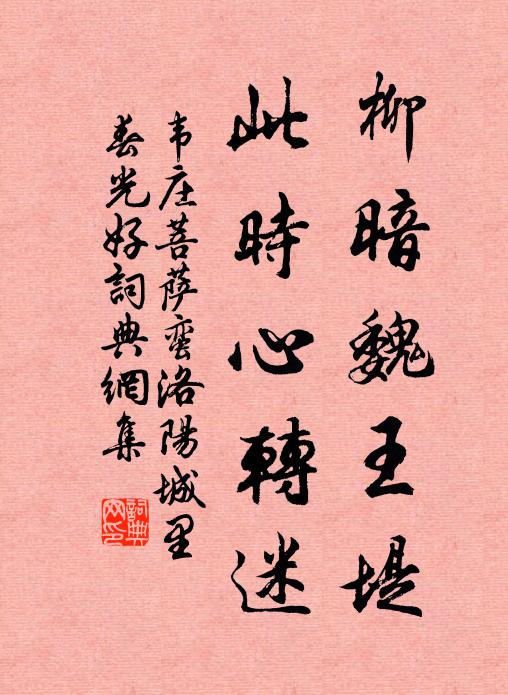 柳暗魏王堤
此時心轉迷
韦庄菩萨蛮洛陽城里
春光好詞典網集
詞典
网印